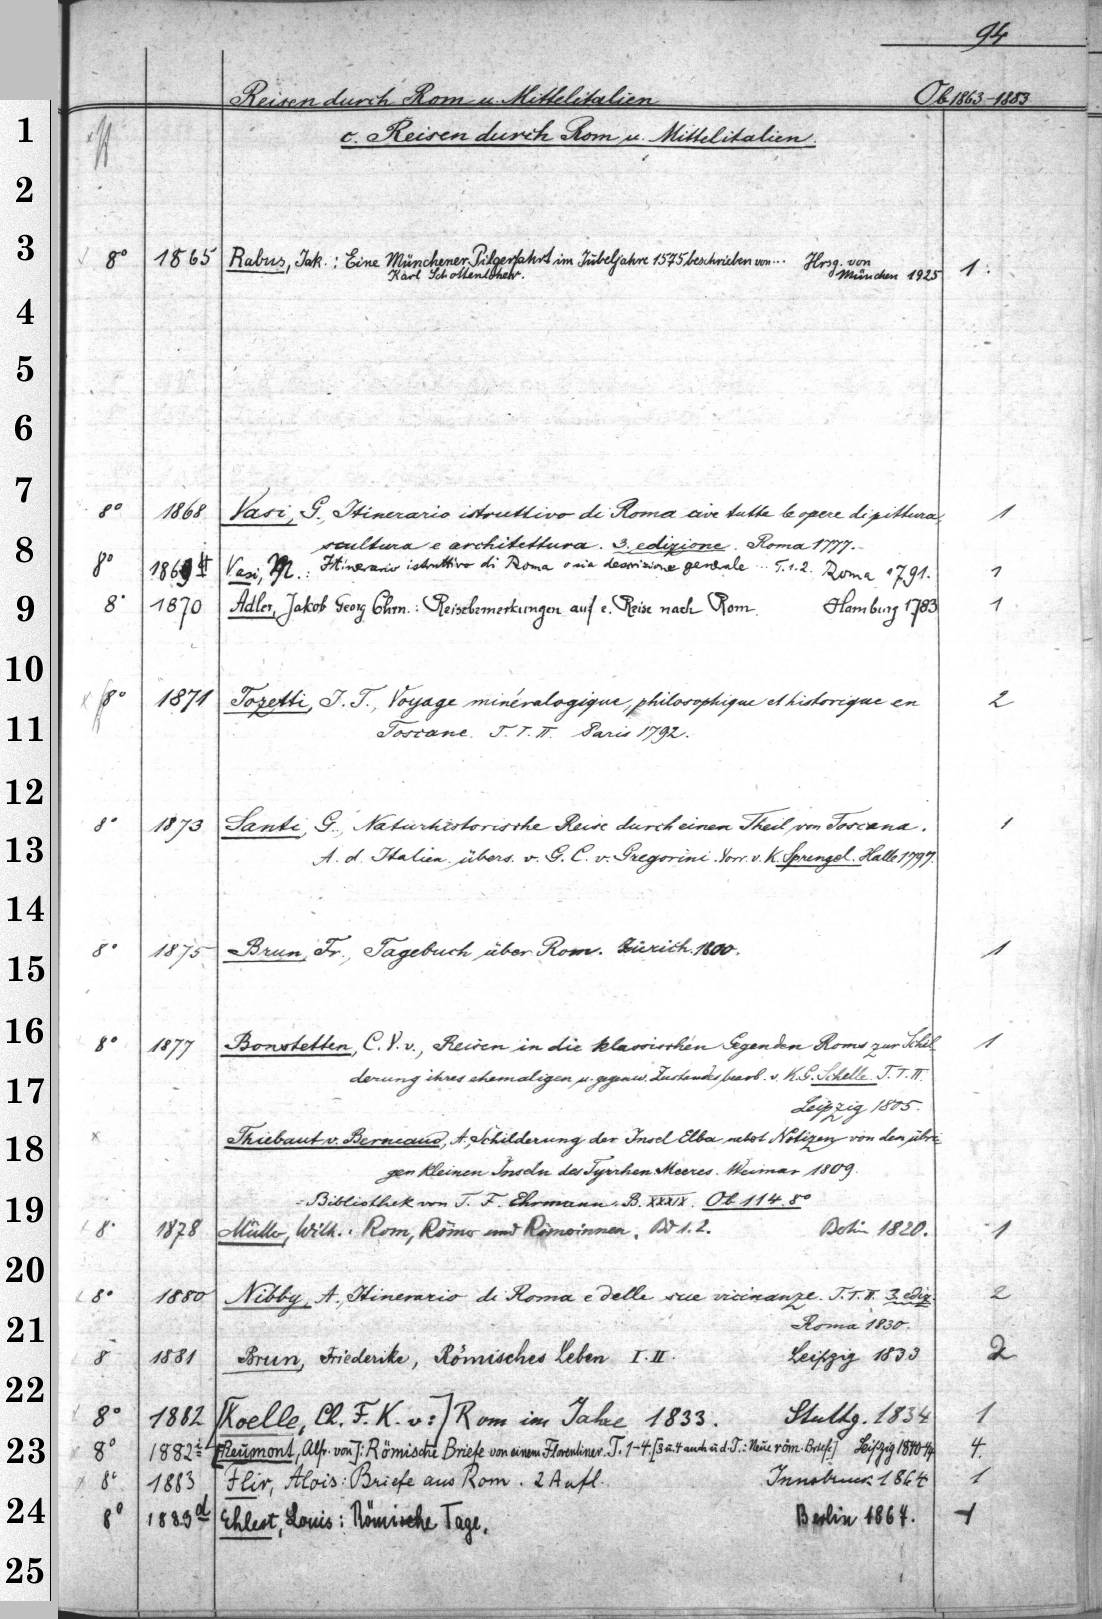 94
Reisen durch Rom u. Mittelitalien Ob 1863-1883
c. Reisen durch Rom u. Mittelitalien.
8° 1865 Rabus, Jak.: Eine Münchener Pilgerfahrt im Jubeljahre 1575 beschrieben von... Hrsg. von 1.
Karl Schottenloher. München 1925
8° 1868 Vasi, G., Itinerario istruttivo di Roma ove tutte le opere di pittura, 1
scultura e architettura. 3. edizione. Roma 1777.
8° 1869 Vasi, M.: Itinerario istruttivo di Roma o sia descrizione generale ... T.1.2. Roma 1791. 1
8° 1870 Adler, Jakob Georg Chrn.: Reisebemerkungen auf e. Reise nach Rom. Hamburg 1783 1
8° 1871 Tozetti, J. T., Voyage minéralogique, philosophique et historique en 2
Toscane. T. I. II. Paris 1792.
8° 1873 Santi, G., Naturhistorische Reise durch einen Theil von Toscana. 1
A. d. Italien. übers. v. G. C. v. Gregorini. Vorr. v. K. Sprengel. Halle 1797.
8° 1875 Brun, Fr., Tagebuch über Rom. Zürich. 1800. 1
8° 1877 Bonstetten, C. V. v., Reisen in die klassischen Gegenden Roms zur Schil- 1
derung ihres ehemaligen u. gegenw. Zustandes, bearb. v. K. G. Schelle. T. I. II.
Leipzig 1805.
Thiebaut v. Berneaud, A., Schilderung der Insel Elba nebst Notizen von den übri-
gen kleinen Inseln des Tyrrhen. Meeres. Weimar 1809.
Bibliothek von T. F. Ehrmann. B. XXXIX. Ob 114. 8°
8° 1878 Müller, Wilh.: Rom, Römer und Römerinnen. Bd 1.2. Berlin 1820. 1
8° 1880 Nibby, A., Itinerario di Roma e delle sue vicinanze. T. I. II. 3. ediz. 2
Roma 1830.
8 1881 Brun, Friederike, Römisches Leben I. II. Leipzig 1833 2
8° 1882 [Koelle, Ch. F. K. v:] Rom im Jahre 1833. Stuttg. 1834 1
8° 1882 [Reumont, Alfr. von]: Römische Briefe von einem Florentiner. T. 1-4 [3 u. 4 auch u. d. T.: Neue röm. Briefe] Leipzig 1840-44 4.
8° 1883 Flir, Alois: Briefe aus Rom. 2 Aufl. Innsbruck 1864 1
8° 1883d Ehlert, Louis: Römische Tage. Berlin 1867. 1
1
2
3
4
5
6
7
8
9
10
11
12
13
14
15
16
17
18
19
20
21
22
23
24
25